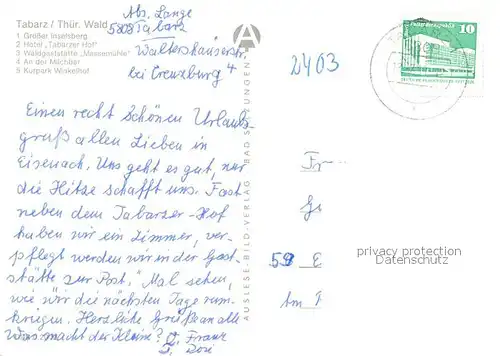 Tabarz / Thür. Wald
1 Großer Inselsberg
2 Hotel „Tabarzer Hof"
3 Waldgaststätte „Massemühle"
4 An der Mächbar
5 Kurpark Winkelhof
Abs. Lange
5808 Tabarz
Waltershäuserstr.
bei Creuzburg 4
2403
10
Einen recht schönen Urlaubs-
gruß allen Lieben in
Eisenach. Uns geht es gut, nur
die Hitze schafft uns. Fast
neben dem Tabarzer-Hof
haben wir ein Zimmer, ver-
pflegt werden wir in der Gast-
stätte zur Post." Mal sehen,
wie wir die nächsten Tage rum-
kriegen. Herzliche Grüße an alle
Was macht der Kleine? O. Franz
T. Dori
AUSLESE-BILD-VERLAG BAD SALZUNGEN
Fr
59 E
Am
privacy protection
Datenschutz